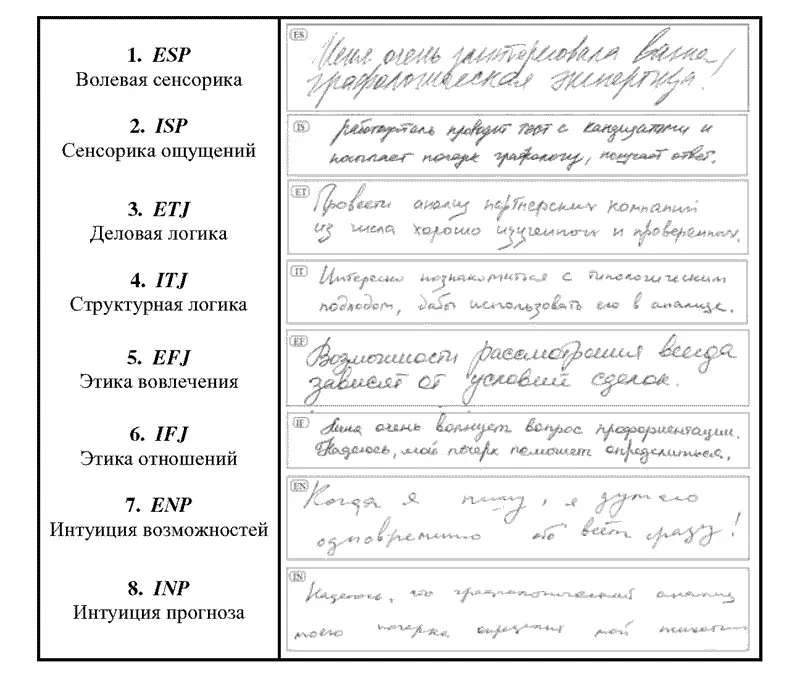 1. ESP
Волевая сенсорика
ES
Меня очень заинтересовала ваша
графологическая экспертиза!
2. ISP
Сенсорика ощущений
IS
работодатель проводит тест с кандидатами и
посылает почерк графологу, получает ответ.
3. ETJ
Деловая логика
ET
Провести анализ партнерских компаний
из числа хорошо изученных и проверенных.
4. ITJ
Структурная логика
IT
Интересно познакомиться с типологическим
подходом, дабы использовать его в анализе.
5. EFJ
Этика вовлечения
EF
Возможности рассмотрения всегда
зависят от условий сделок.
6. IFJ
Этика отношений
IF
Меня очень волнует вопрос профориентации.
Надеюсь, мой почерк поможет определиться.
7. ENP
Интуиция возможностей
EN
Когда я пишу, я думаю
одновременно обо всём сразу!
8. INP
Интуиция прогноза
IN
Надеюсь, что графологический анализ
моего почерка определит мой психотип